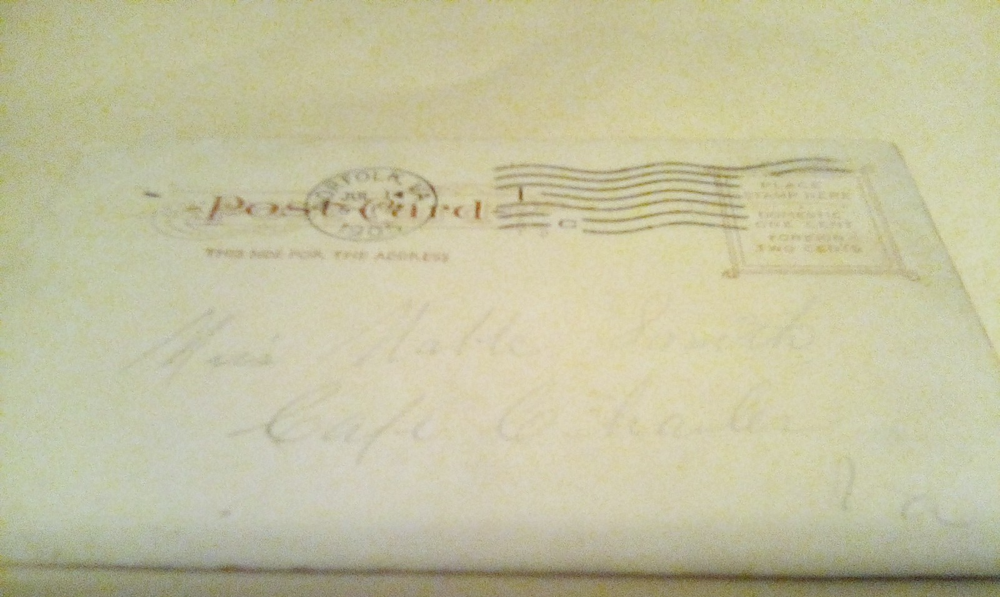 NORFOLK, VA.
JUL
1905
Post Card
THIS SIDE FOR THE ADDRESS
PLACE
STAMP HERE
DOMESTIC
ONE CENT
FOREIGN
TWO CENTS
Miss Mable Smith
Cape Charles
Va